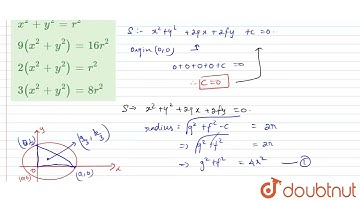 x² + y² = r²
9(x² + y²) = 16r²
2(x² + y²) = r²
3(x² + y²) = 8r²
S:- x²+y² + 2gx + 2fy + c = 0.
origin (0,0)
0+0+0+0+c = 0
∴ C = 0
S → x²+y² + 2gx + 2fy = 0.
radius = √g²+f²-c = 2r
⇒ √g²+f² = 2r
⇒ g²+f² = 4r² — ①
y
(a/3, b/3)
(0,b)
(0,0) 0 (a,0) x
doubtnut